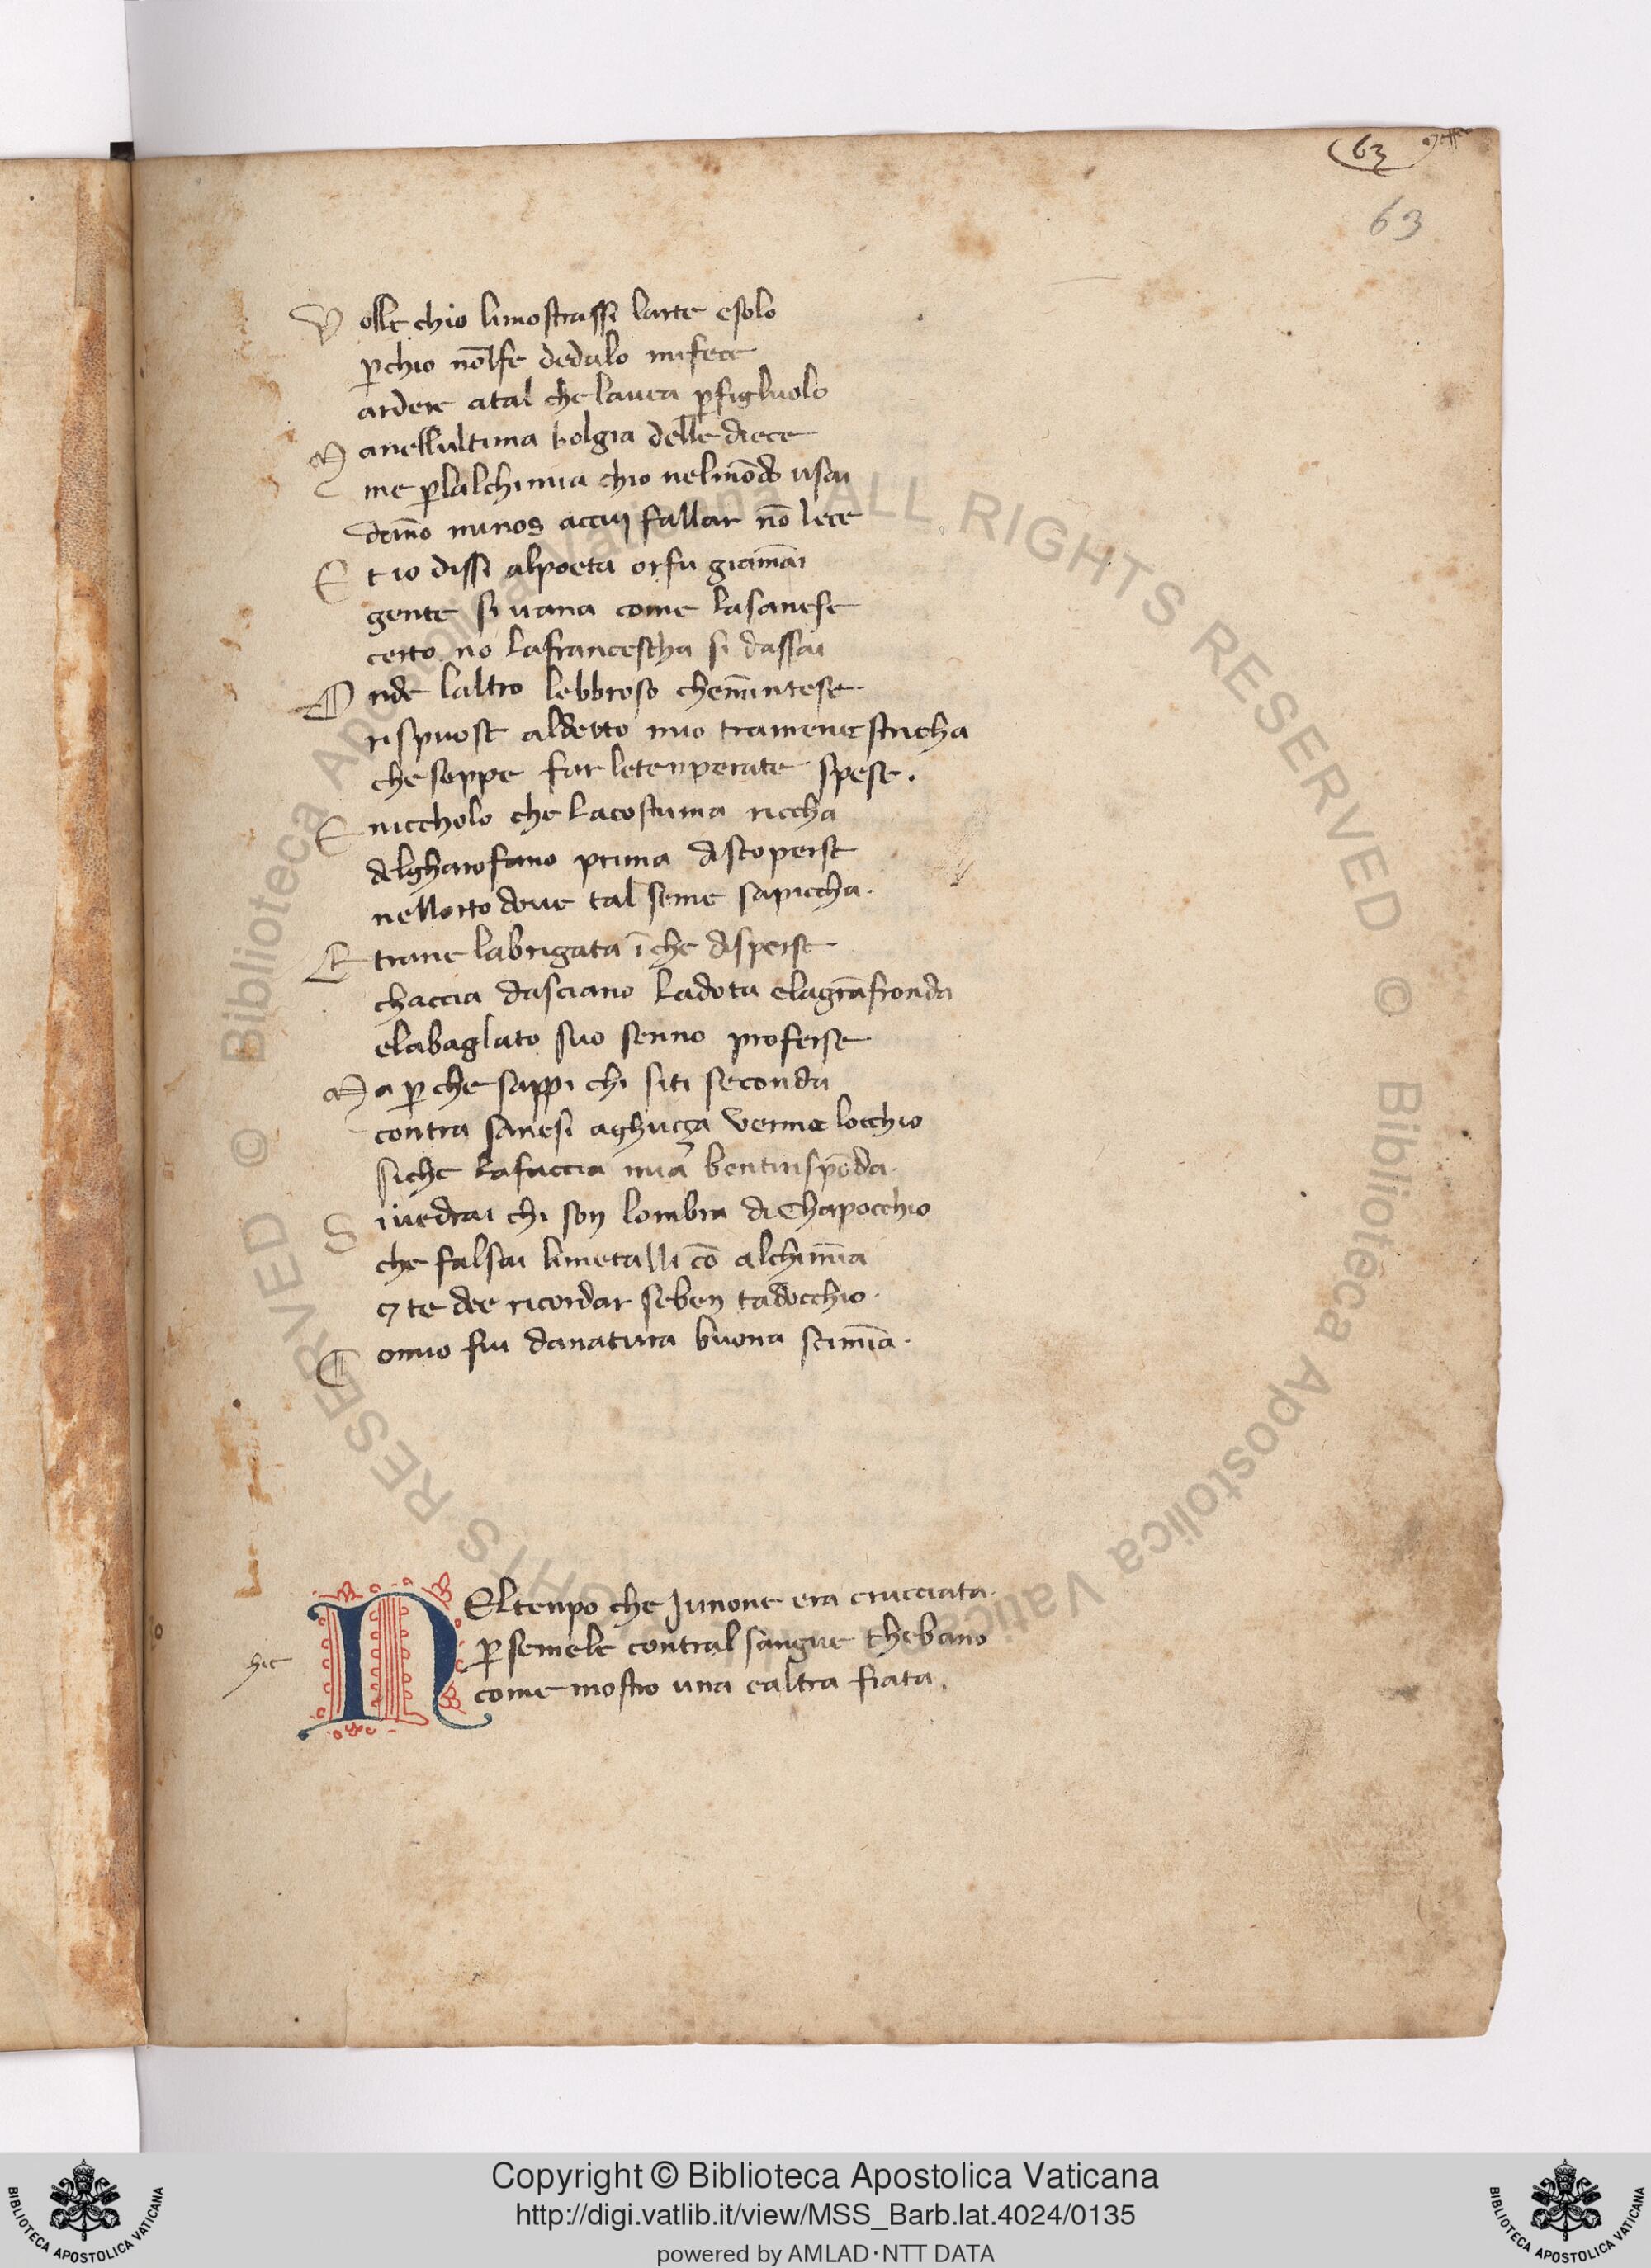 63
63
Volle chio limostrassi larte esolo
ꝑchio nōlfe dedalo mifece
ardere atal che lauea ꝑfigluolo
Manellultima bolgia delle diece
me ꝑlalchimia chio nelmōdo usai
dānno minos accuj fallar nō lece
Et io dissi alpoeta orfu giāmai
gente si uana come lasanese
certo no lafrancescha si dassai
Onde laltro lebbroso chemintese
rispuose aldetto mio tramene stricha
che seppe far letenperate spese.
E niccholo che lacostuma riccha
delgharofano prima discoperse
nellorto doue tal seme sapiccha.
Et trane labrigata ī che disperse
chaccia dasciano ladota elagrāfronda
elabaglato suo senno proferse
Ma ꝑ che sappi chi siti seconda
contra sanesi aghuçça verme locchio
siche lafaccia mia bentirispōda.
Si uedrai chi son lombra di Chapocchio
che falsai limetalli cō alchimia
⁊ te dee ricordar seben tadocchio.
Comio fui danatura buona scimia.
NEltenpo che Junone era crucciata.
ꝑ semele contral sangue thebano
come mostro una ealtra fiata.
hic
© Biblioteca Apostolica Vaticana ALL RIGHTS RESERVED © Biblioteca Apostolica Vaticana ALL RIGHTS RESERVED
Copyright © Biblioteca Apostolica Vaticana
http://digi.vatlib.it/view/MSS_Barb.lat.4024/0135
powered by AMLAD·NTT DATA
BIBLIOTECA APOSTOLICA VATICANA
BIBLIOTECA APOSTOLICA VATICANA